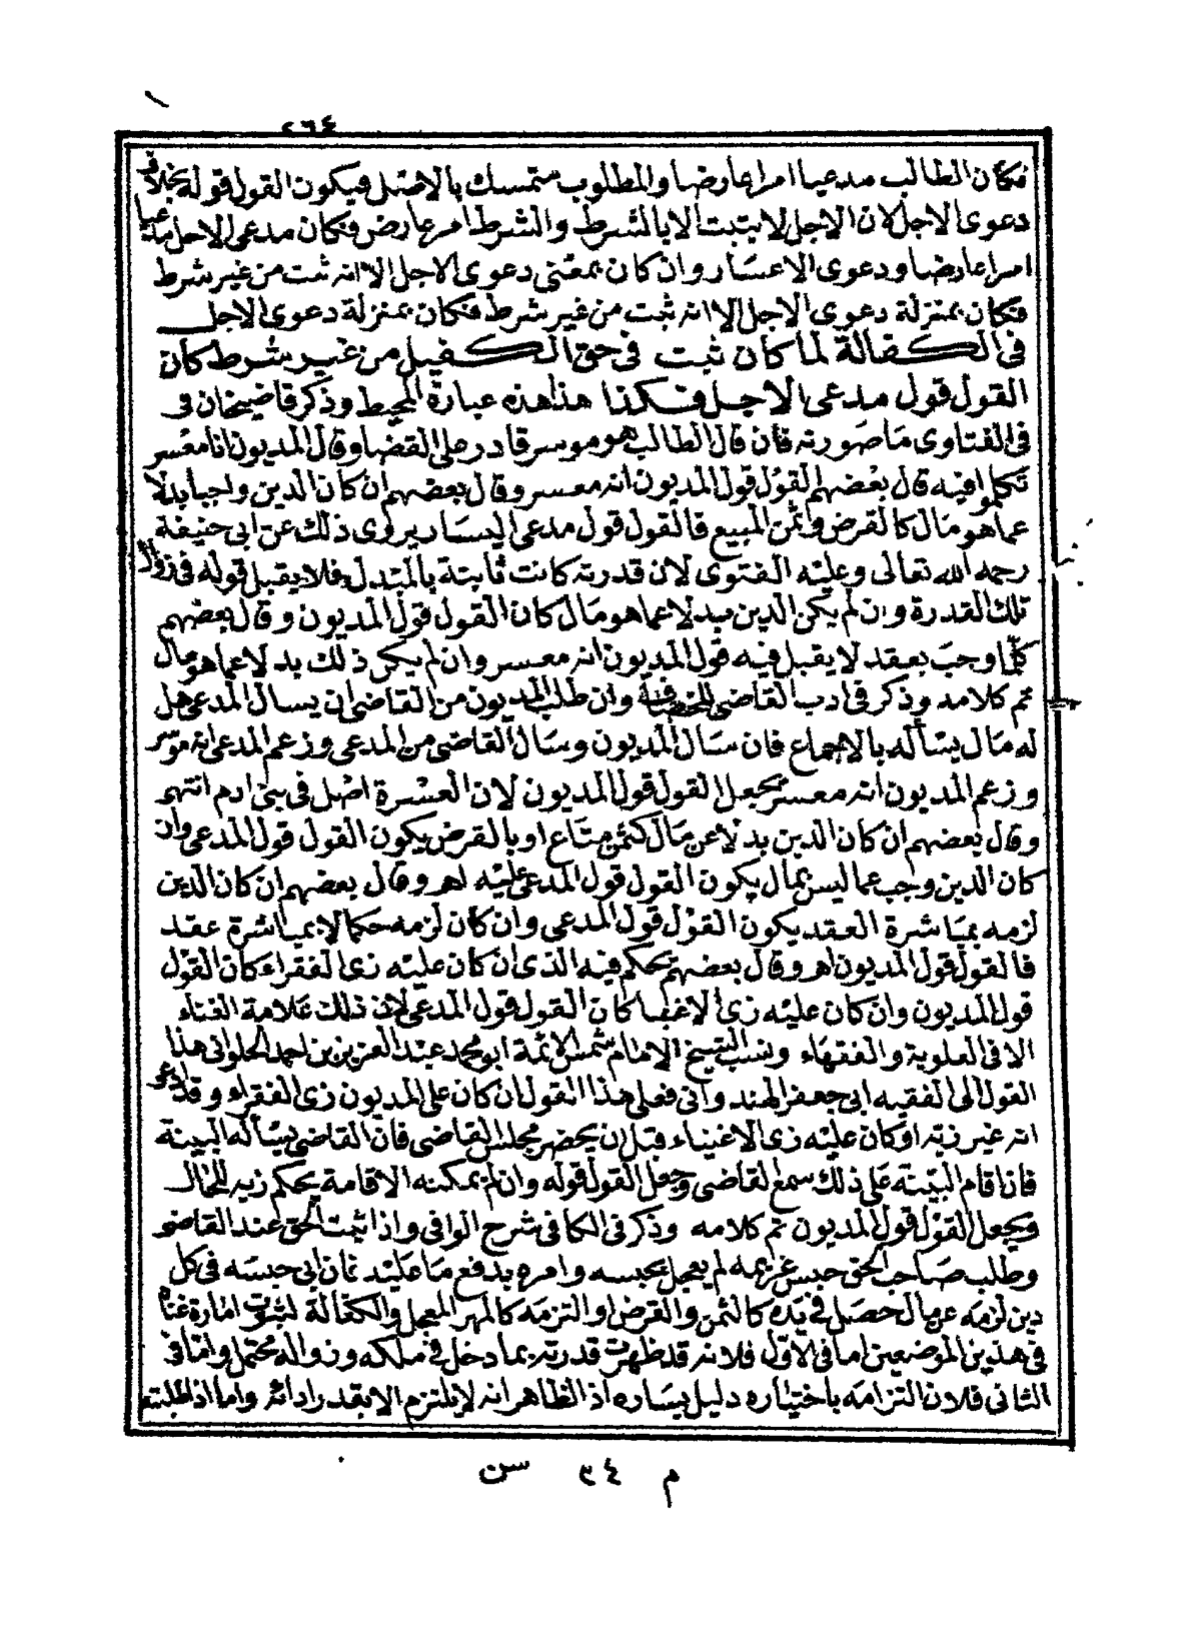 ٢٦٤
فكان الطالب مدعيا امرا عارضا والمطلوب ستمسك بالاصل فيكون القول قوله بخلاف
دعوى الاجل لان الاجل لا يثبت الا بالشرط والشرط امر عارض فكان مدعى الاجل مدعيا
امرا عارضا ودعوى الاعسار وان كان بمعنى دعوى الاجل الا انه ثبت من غير شرط
فكان بمنزلة دعوى الاجل الا انه ثبت من غير شرط فكان بمنزلة دعوى الاجل
فى الكفالة لما كان ثبت فى حق الكفيل من غير شرط كان
القول قول مدعى الاجل فكذا هذا هذه عبارة المحيط وذكر قاضيخان فى
فى الفتاوى ما صورته فان قال الطالب هو موسر قادر على القضا وقال المديون انا معسر
تكلموا فيه قال بعضهم القول قول المديون انه معسر وقال بعضهم ان كان الدين واجبا بدلا
عما هو مال كالقرض وثمن المبيع فالقول قول مدعى اليسار يروى ذلك عن ابى حنيفة
رحمه الله تعالى وعليه الفتوى لان قدرته كانت ثابتة بالمبدل فلا يقبل قوله فى زوال
تلك القدرة وان لم يكن الدين بدلا عما هو مال كان القول قول المديون وقال بعضهم
كلما وجب بعقد لا يقبل فيه قول المديون انه معسر وان لم يكن ذلك بدلا عما هو مال
تم كلامه وذكر فى ادب القاضى وان طلب المديون من القاضى ان يسال المدعى هل
له مال يسأله بالاجماع فان سال المديون وسال القاضى من المدعى وزعم المدعى انه موسر
وزعم المديون انه معسر يجعل القول قول المديون لان العسرة اصل فى بنى ادم انتهى
وقال بعضهم ان كان الدين بدلا عن مال كثمن متاع او بالقرض يكون القول قول المدعى وان
كان الدين وجب عما ليس بمال يكون القول قول المدعى عليه اهـ وقال بعضهم ان كان الدين
لزمه بمباشرة العقد يكون القول قول المدعى وان كان لزمه حكما لا بمباشرة عقد
فالقول قول المديون اهـ وقال بعضهم يحكم فيه الذى ان كان عليه زى الفقراء كان القول
قول المديون وان كان عليه زى الاغنيا كان القول قول المدعى لان ذلك علامة الغناء
الا فى العلوية والفقهاء ونسب الشيخ الامام شمس الائمة ابو محمد عبد العزيز بن احمد الحلوانى هذا
القول الى الفقيه ابى جعفر الهندوانى فعلى هذا القول ان كان على المديون زى الفقراء وقد ادعى
انه غير زيه او كان عليه زى الاغنياء قبل ان يحضر مجلس القاضى فان القاضى يسأله البينة
فان اقام البينة على ذلك سمع القاضى وجعل القول قوله وان لم يمكنه الاقامة يحكم زيه للحال
ويجعل القول قول المديون تم كلامه وذكر فى الكافى شرح الوافى واذا ثبت الحق عند القاضى
وطلب صاحب الحق حبس غريمه لم يعجل بحبسه وامره بدفع ما عليه فان ابى حبسه فى كل
دين لزمه عن مال حصل فى يده كالثمن والقرض او التزمه كالمهر المعجل والكفالة لثبوت امارة غناه
فى هذين الموضعين اما فى الاول فلانه قد ظهرت قدرته بما دخل فى ملكه وزواله محتمل واما فى
الثانى فلان التزامه باختياره دليل يساره اذ الظاهر انه لا يلتزم الا بقدر ادائه واما اذا طلبته
م ٣٤ سن